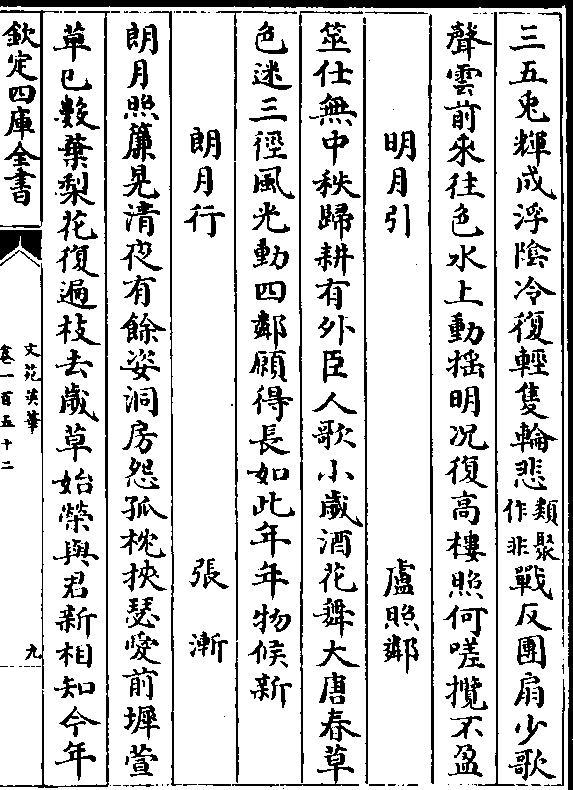 三五兎輝成浮陰冷復輕隻輪悲類聚作非戰反團扇少歌
聲雲前來往色水上動揺明况復髙樓照何嗟攬不盈
明月引 盧照鄰
筮仕無中秩歸耕有外臣人歌小歲酒花舞大唐春草
色迷三徑風光動四鄰願得長如此年年物候新
朗月行 張漸
朗月照簾晃清夜有餘姿洞房怨孤枕挾瑟愛前墀萱
草已數葉梨花復遍枝去歲草始榮與君新相知今年
欽定四庫全書
文苑英華
卷一百五十二
九